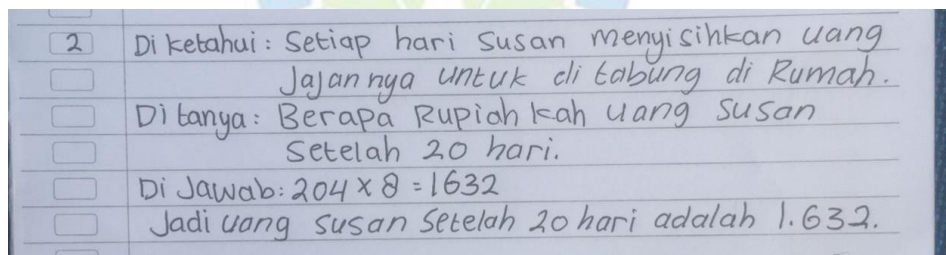 2 Diketahui: Setiap hari Susan menyisihkan uang
Jajannya untuk di tabung di Rumah.
Ditanya: Berapa Rupiah kah uang susan
Setelah 20 hari.
Di Jawab: 204 x 8 = 1632
Jadi uang susan Setelah 20 hari adalah 1.632.